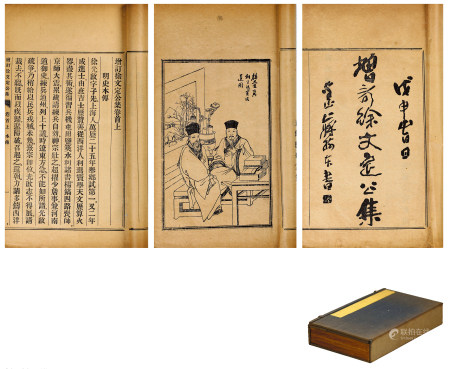 增訂徐文定公集卷首上
明史本傳
徐光啟字子先上海人萬曆二十五年舉鄉試第一又七年
成進士由庶吉士歷贊善從西洋人利瑪竇學天文曆算火
器盡其術遂徧習兵機屯田鹽筴水利諸書楊鎬四路喪師
京師大震累疏請練兵自效神宗壯之超擢少詹事兼河南
道御史練兵通州列上十議時遼東方急不能如所請光啟
疏爭乃稍給以民兵戎械未幾熹宗即位光啟志不得展請
裁去不聽既而以疾歸遼陽破召起之還朝力請多鑄西洋
戊申
增訂徐文定公集